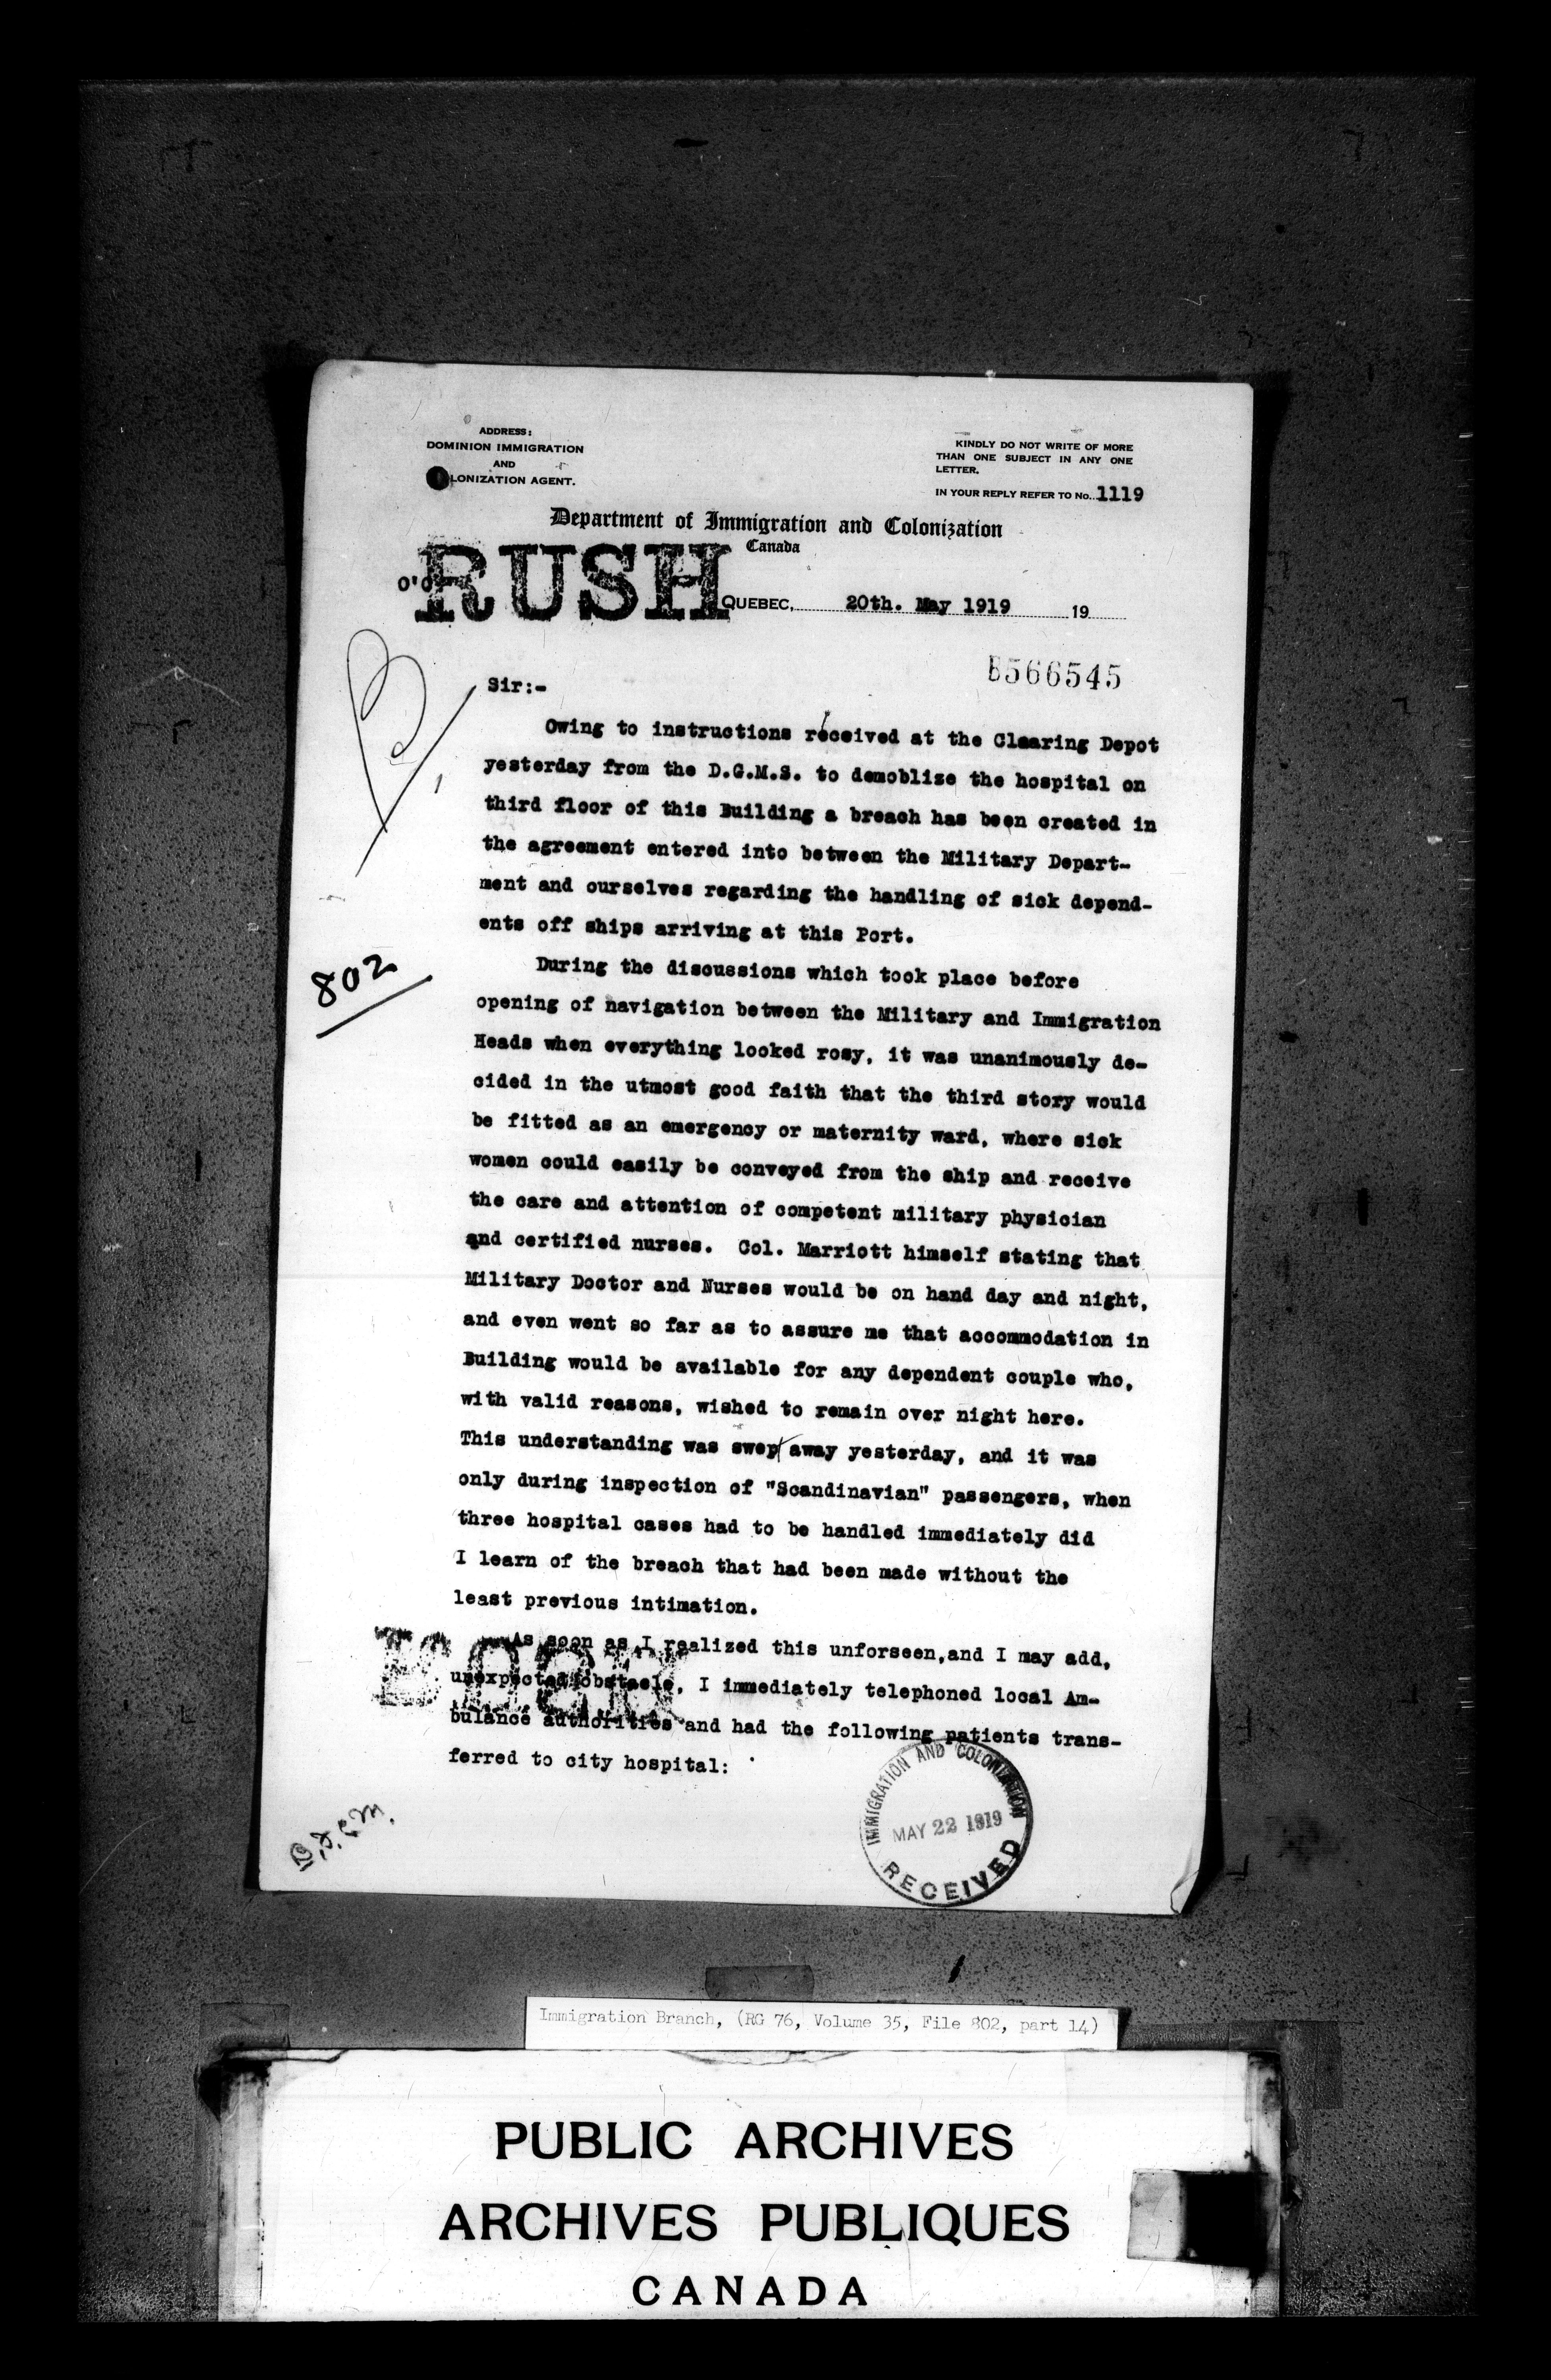 ADDRESS:
DOMINION IMMIGRATION
AND
LONIZATION AGENT.
KINDLY DO NOT WRITE OF MORE
THAN ONE SUBJECT IN ANY ONE
LETTER.
IN YOUR REPLY REFER TO No. 1119
Department of Immigration and Colonization
Canada
RUSH
QUEBEC, 20th. May 1919 19
B566545
Sir:-
Owing to instructions received at the Claaring Depot
yesterday from the D.G.M.S. to demoblize the hospital on
third floor of this Building a breach has been created in
the agreement entered into between the Military Depart-
ment and ourselves regarding the handling of sick depend-
ents off ships arriving at this Port.
802
During the discussions which took place before
opening of navigation between the Military and Immigration
Heads when everything looked rosy, it was unanimously de-
cided in the utmost good faith that the third story would
be fitted as an emergency or maternity ward, where sick
women could easily be conveyed from the ship and receive
the care and attention of competent military physician
and certified nurses. Col. Marriott himself stating that
Military Doctor and Nurses would be on hand day and night,
and even went so far as to assure me that accommodation in
Building would be available for any dependent couple who,
with valid reasons, wished to remain over night here.
This understanding was swept away yesterday, and it was
only during inspection of "Scandinavian" passengers, when
three hospital cases had to be handled immediately did
I learn of the breach that had been made without the
least previous intimation.
As soon as I realized this unforseen,and I may add,
unexpected obstacle, I immediately telephoned local Am-
bulance authorities and had the following patients trans-
ferred to city hospital:
IMMIGRATION AND COLONIZATION
MAY 22 1919
RECEIVED
Immigration Branch, (RG 76, Volume 35, File 802, part 14)
PUBLIC ARCHIVES
ARCHIVES PUBLIQUES
CANADA